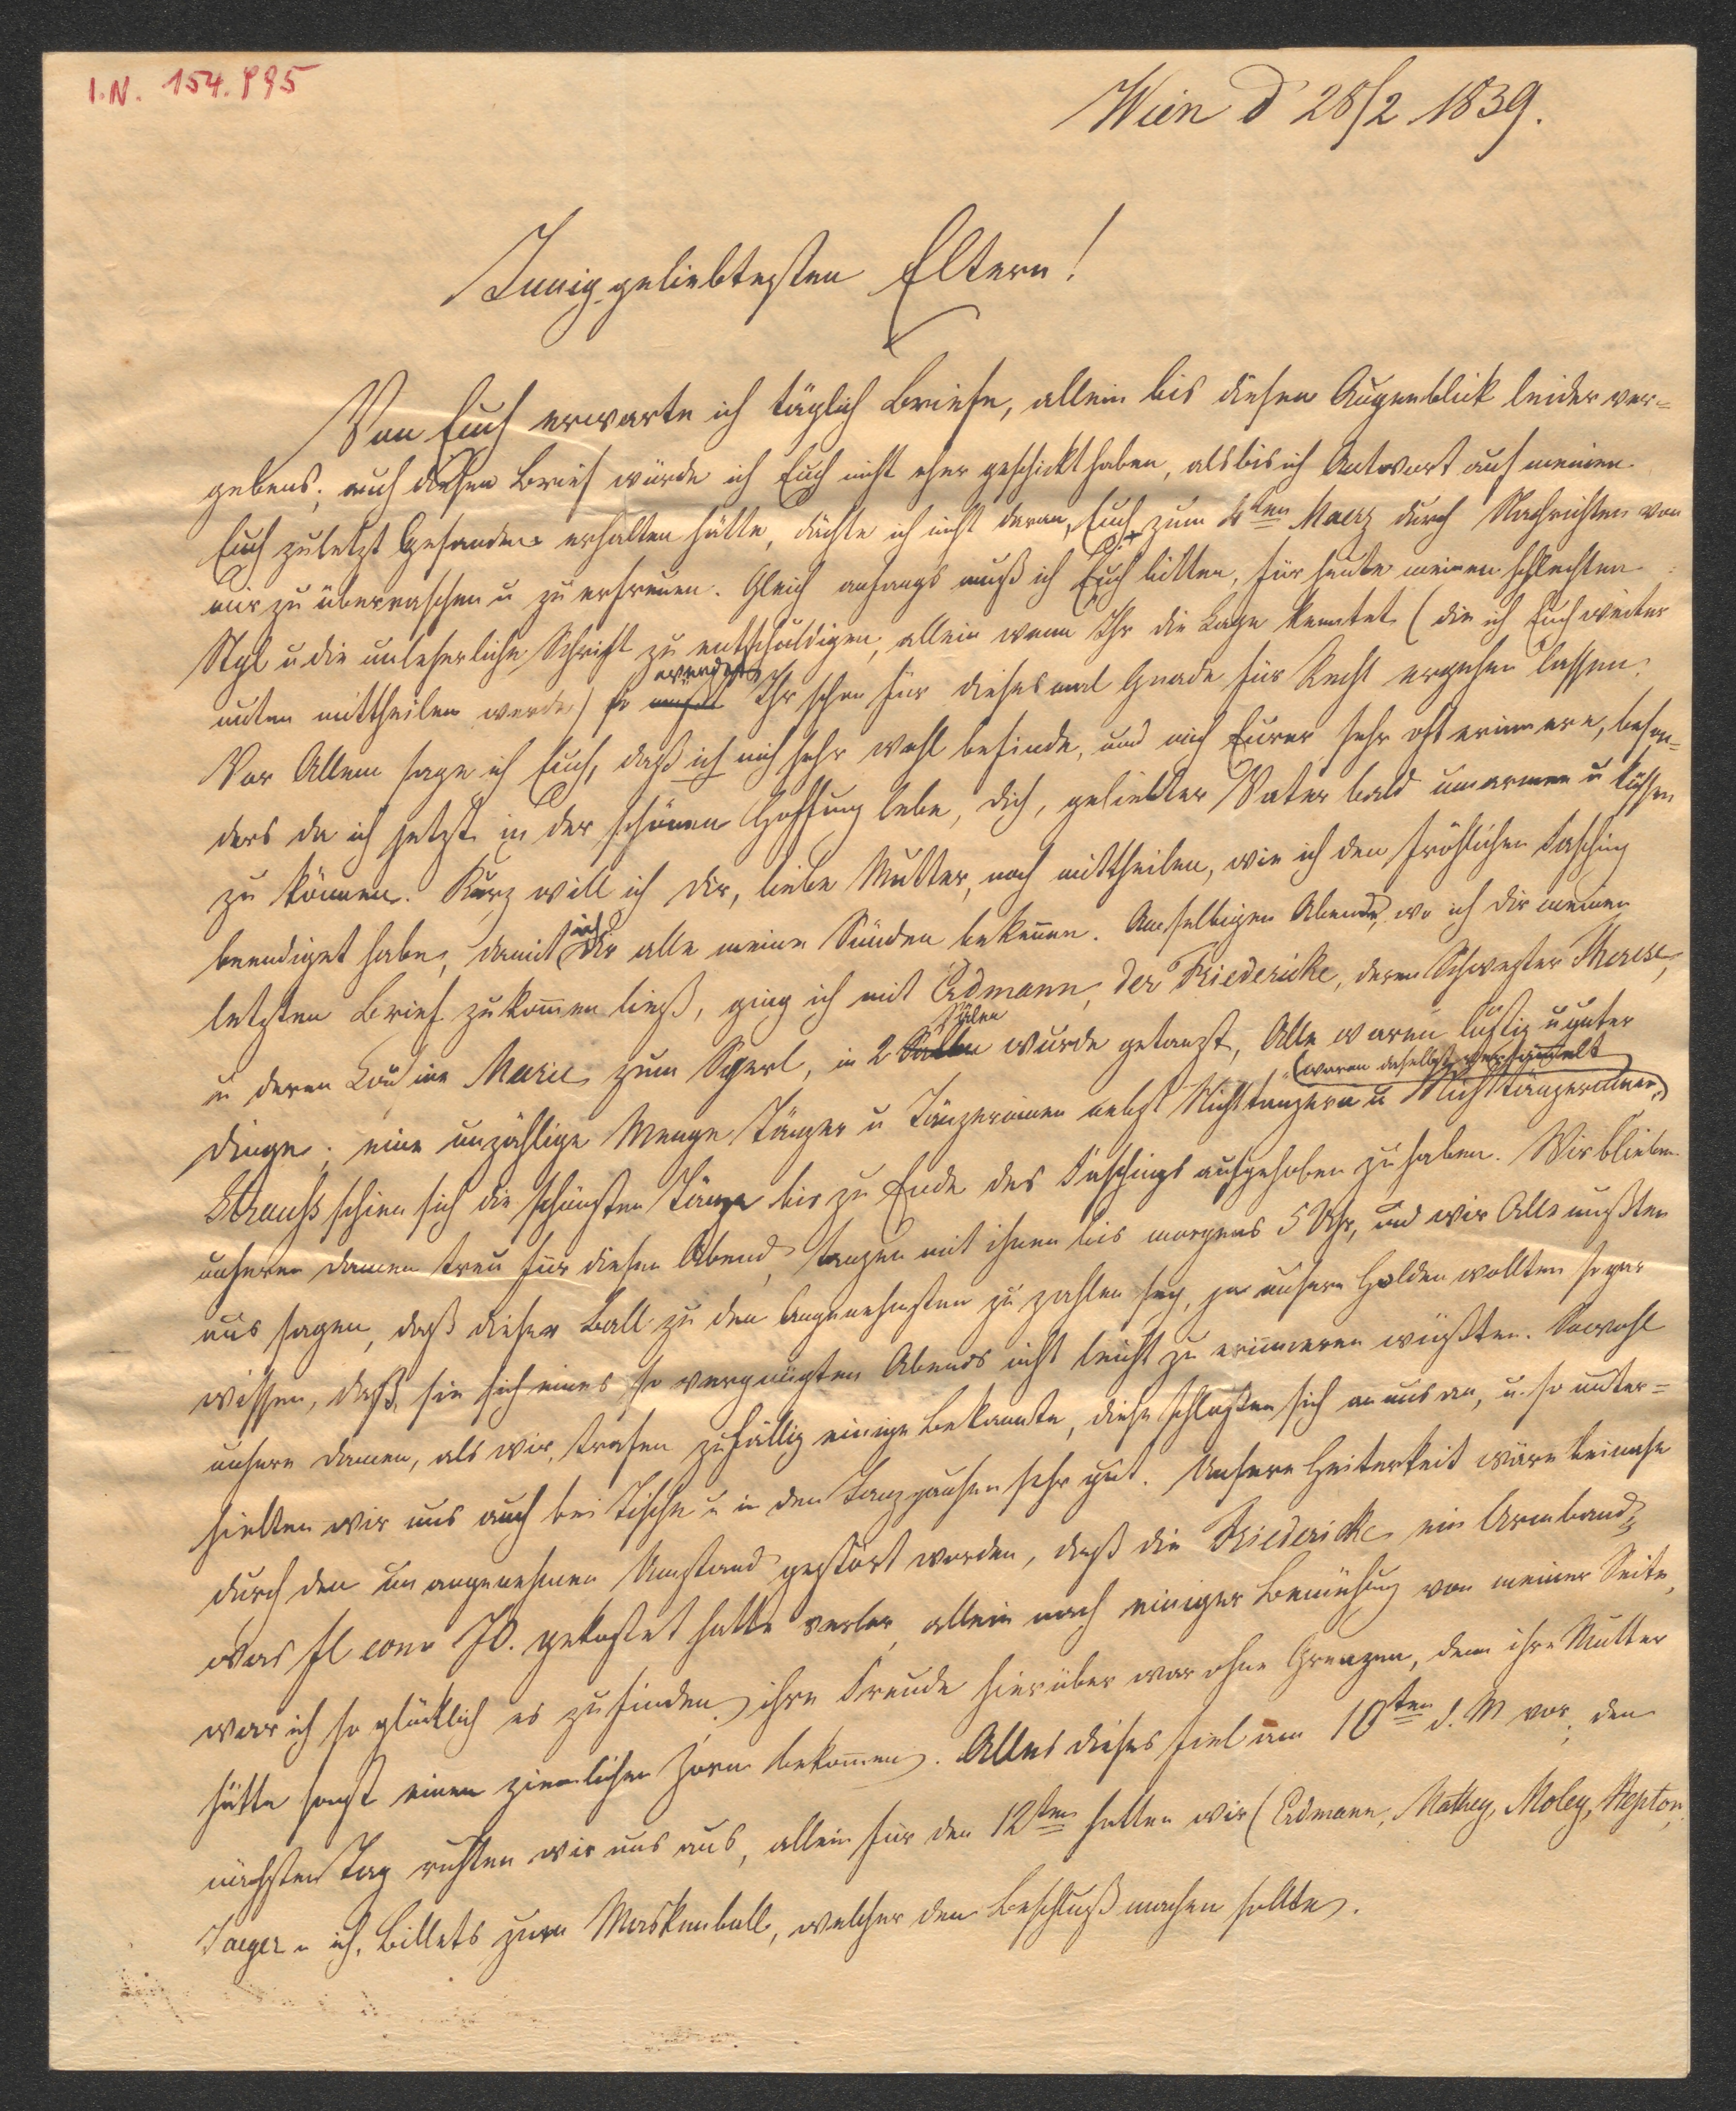 I.N. 154.995
Wien d 28/2 1839.
Innig geliebtesten Eltern!
Von Euch erwarte ich täglich Briefe, allein bis diesen Augenblick leider ver=
gebens; auch diesen Brief würde ich Euch nicht eher geschickt haben, als bis ich Antwort auf meinen
Euch zuletzt Gesandten erhalten hätte, dächte ich nicht daran, Euch zum 4ten Maerz durch Nachrichten von
mir zu überraschen u zu erfreuen. Gleich anfangs muß ich Euch bitten, für heute meinen schlechten
Styl u die unleserliche Schrift zu entschuldigen, allein wenn Ihr die Lage kenntet (die ich Euch weiter
unten mittheilen werde) so müßt werdet Ihr schon für dieses mal Gnade für Recht ergehen lassen.
Vor Allem sage ich Euch, daß ich mich sehr wohl befinde, und mich Eurer sehr oft erinnere, beson=
ders da ich jetzt in der schönen Hoffnung lebe, dich, geliebter Vater bald umarmen u küssen
zu können. Kurz will ich dir, liebe Mutter, noch mittheilen, wie ich den fröhlichen Fasching
beendiget habe, damit ich dir alle meine Sünden bekenne. Am selbigen Abende, wo ich dir meinen
letzten Brief zukommen ließ, ging ich mit Erdmann, der Friedericke, deren Schwester Therese,
u deren Cousine Marie zum Sperl, in 2 Sälen wurde getanzt, Alle waren lustig u guter
Dinge; eine unzählige Menge Tänzer u Tänzerinnen nebst Nichttänzern u Nichttänzerinnen (waren daselbst versammelt).
Strauß schien sich die schönsten Tänze bis zu Ende des Faschings aufgehoben zu haben. Wir blieben
unseren Damen treu für diesen Abend, tanzten mit ihnen bis morgens 5 Uhr, und wir Alle mußten
uns sagen, daß dieser Ball zu den Angenehmsten zu zählen sey, ja unsere Holden wollten sogar
wissen, daß sie sich eines so vergnügten Abends nicht leicht zu erinneren wüßten. Sowohl
unsere Damen, als wir, trafen zufällig einige Bekannte, diese schloßen sich an uns an, u. so unter=
hielten wir uns auch bei Tische u in den Tanzpausen sehr gut. Unsere Heiterkeit wäre beinahe
durch den unangenehmen Umstand gestört worden, daß die Friedericke ein Armband,
was fl conv 70. gekostet hatte verlor, allein nach einiger Bemühung von meiner Seite,
war ich so glücklich es zu finden, ihre Freude hierüber war ohne Grenzen, denn ihre Mutter
hätte sonst einen ziemlichen Zorn bekommen. Alles dieses fiel am 10ten d. M vor, den
nächsten Tag ruhten wir uns aus, allein für den 12ten hatten wir (Erdmann, Mathey, Moley, Hepton,
Jaeger u ich, Billets zum Maskenball, welcher den Beschluß machen sollte.